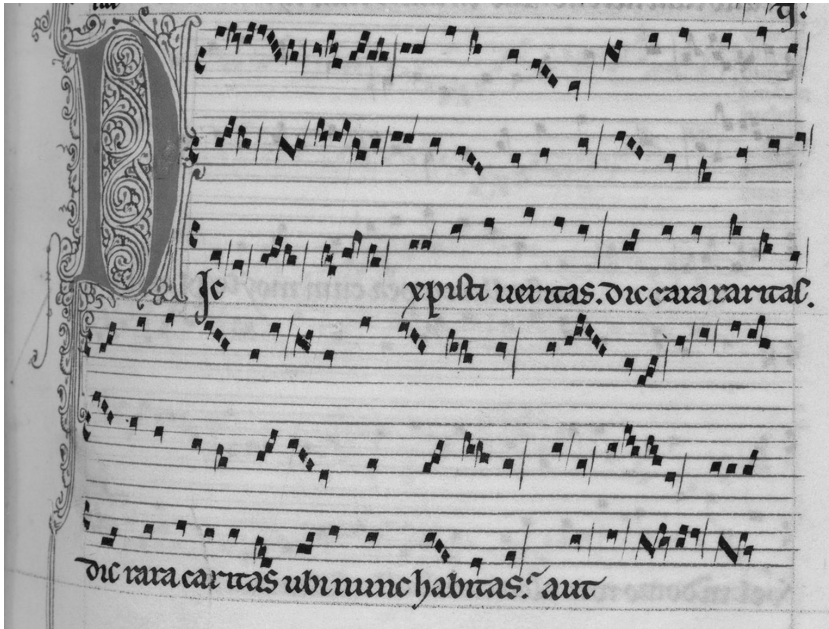 Dic xpisti ueritas. dic cara raritas.
dic rara caritas ubi nunc habitas. aut